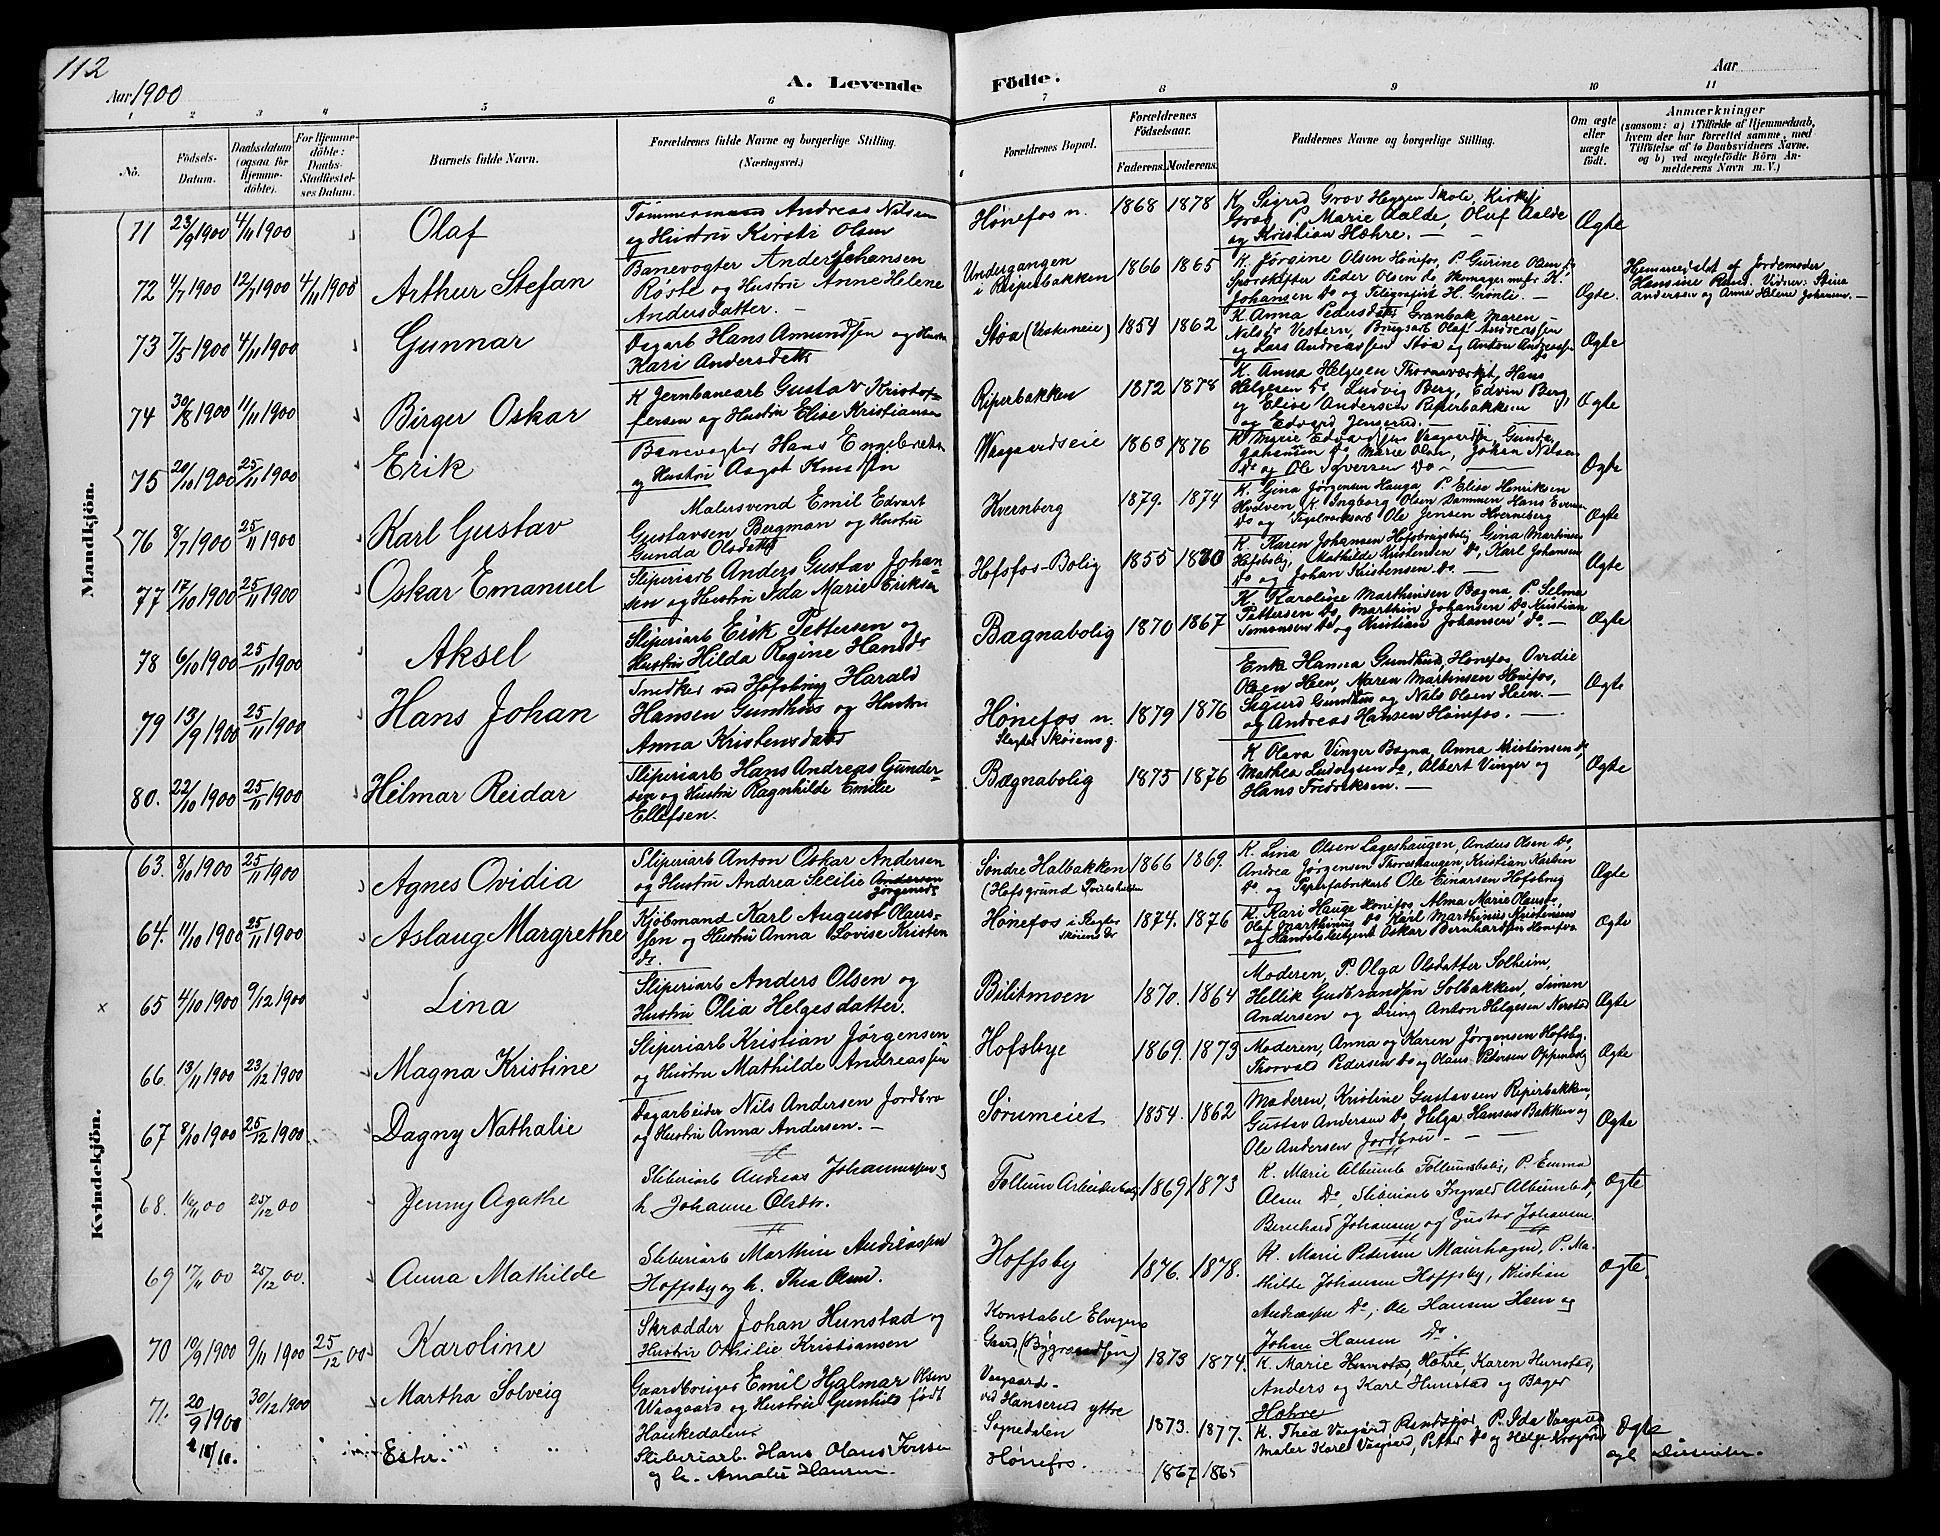 112
Aar 1900
A. Levende Födte.
Aar
1 2 3 4 5 6 7 8 9 10 11
No.
Födsels-Datum.
Daabsdatum (ogsaa for Hjemmedöbte).
For Hjemmedöbte: Daabs-Stadfæstelses Datum.
Barnets fulde Navn.
Forældrenes fulde Navne og borgerlige Stilling. (Næringsvei.)
Forældrenes Bopæl.
Forældrenes Födselsaar.
Faderens. Moderens.
Faddernes Navne og borgerlige Stilling.
Om ægte eller uægte födt.
Anmærkninger
(saasom: a) i Tilfælde af Hjemmedaab, hvem der har forrettet samme, med Tilföielse af to Daabsvidners Navne, og b) ved uægtefödte Börn Anmelderens Navn m. V.)
Mandkjön.
71 23/9 1900 4/11 1900 Olaf
Tømmermand Andreas Nilsen
og Hustru Kersti Olsen
Hønefos n. 1868 1878
K. Sigrid Grov Heggen Skole, Kirkesj
Grov, P. Marie Aalde, Oluf Aalde
og Kristian Hæhre. Ægte
72 4/7 1900 12/7 1900 4/11 1900 Arthur Stefan
Banevogter Anders Johansen
Røste og Hustru Anne Helene
Andersdatter.
Undergangen
i Riperbakken 1866 1865
K. Jørgine Olsen Hønefos, P. Gurine Olsen do
Sporskifter Peder Olsen do
Johansen Do og Telegrafist H. Grønli. Ægte.
Hjemmedøbt af Jordemoder
Hansine Ruud. Vidner: Stina
Andersen og Anne Helene Johansen.
73 7/5 1900 4/11 1900 Gunnar
Dagarb Hans Amundsen og Hustru
Kari Andersdatter
Støa (Vesterneie) 1854 1862
K. Anna Pedersdatter Granbak, Maren
Nilsdr Vestern, Brugsarb Olaf Andreassen
og Lars Andreassen Støa og Anton Andreassen Do Ægte
74 30/8 1900 11/11 1900 Birger Oskar
K Jernbanearb Gustav Kristof-
fersen og Hustru Elise Kristiansen
Riperbakken 1872 1878
K. Anna Helgesen Thornværket, Hans
Helgesen Do, Ludvig Berg, Edvin Berg,
og Elise Andersen Riperbakken
og Edvard Jenserud. Ægte
75 20/10 1900 25/11 1900 Erik
Banevogter Hans Engebretsen
og Hustru Aagot Knudsen
Vaagaardseie 1860 1876
K. Marie Edvardsen Vaagaard, Gunda
Johansen Do, Marie Olsen, Johan Nilsen
Do og Ole Iversen Do Ægte
76 8/7 1900 25/11 1900 Karl Gustav
Malersvend Emil Edvart
Gustavsen Bergman og Hustru
Gunda Olsdatter
Hvernberg 1879. 1874
K. Gina Jørgensen Hauga, P. Elise Henriksen
Hvelven, K. Ingborg Olsen Dammen, Hans Evensen
Do og Teglverksarb Ole Jensen Hvernberg Ægte
77 17/10 1900 25/11 1900 Oskar Emanuel
Sliperiarb Anders Gustav Johan-
sen og Hustru Ida Marie Eriksen
Hofsfos-Bolig 1855 1860
K. Karen Johansen Hofsbrugsbolig, Gina Martinsen
Hofsbolig, Mathilde Kristensen Do, Karl Johansen
Do og Johan Kristensen Do. Ægte
78 6/10 1900 25/11 1900 Aksel
Sliperiarb Erik Pettersen og
Hustru Hilda Regine Hansdr
Bægnabolig 1870 1867
K. Karoline Marthinsen Bægna, P. Selma
Pettersen Do, Marthin Johansen Do Kristian
Simonsen Do og Kristian Johansen Do. Ægte
79 13/9 1900 25/11 1900 Hans Johan
Snedker ved Hofsbrug Harald
Hansen Gundhus og Hustru
Anna Kristensdatter
Hønefos n.
Slagter Skøiens g. 1879 1876
Enke Hanna Gundhus, Hønefos, Ovidie
Olsen Heen, Maren Martinsen Hønefos,
Sigurd Gundhus og Nils Olsen Heen.
og Andreas Hansen Hønefos. Ægte
80. 22/10 1900 25/11 1900 Helmar Reidar
Sliperiarb Hans Andreas Gunder-
sen og Hustru Ragnhilde Emilie
Ellefsen.
Bægnabolig 1875 1876
K Olava Vinger Bægna, Anna Kristensen do
Mathea Ludvigsen do, Albert Vinger og
Hans Fredriksen. Ægte
Kvindekjön.
63. 8/10 1900 25/11 1900 Agnes Ovidia
Sliperiarb Anton Oskar Andersen
og Hustru Andrea Secilie Andersen
Jørgensdr
Søndre Halbakken
(Hofsgrund 1866 1869.
K. Lina Olsen Lageshaugen, Anders Olsen Do,
Andrea Jørgensen Thoreshaugen, Kristian Karlsen
Do. og Papirfabrikarb Ole Einarsen Hofsbrug Ægte
64. 11/10 1900 25/11 1900 Aslaug Margrethe
Kjøbmand Karl August Olaus-
sen og Hustru Anna Lovise Kristens
dr.
Hønefos i Slagter
Skøiens Gr 1874. 1876
K. Kari Hauge Hønefos, Alma Marie Olausdr,
Olaf Marthinius Do Karl Marthinius Kristensens
og Handelsbetjent Oskar Bernhardsen Hønefos Ægte
x 65 4/10 1900 9/12 1900 Lina
Sliperiarb Anders Olsen og
Hustru Olia Helgesdatter.
Bilitmoen 1870. 1864
Moderen, P. Olga Olsdatter Solheim,
Hellik Gudbrandsen Solbakken, Simen
Andersen og Dreng Anton Helgesen Nerstad Ægte
66. 13/11 1900 23/12 1900 Magna Kristine
Sliperiarb Kristian Jørgensen
og Hustru Mathilde Andreassen
Hofsbye 1869. 1873
Moderen, Anna og Karen Jørgensen Hofsby.
Thorvald Pedersen Do og Olaus Petersen Oppenbolig Ægte
67 8/10 1900 25/12 1900. Dagny Nathalie
Dagarbeider Nils Andersen Jordbro
og Hustru Anna Andersen.
Sørumeiet 1854. 1862
Moderen, Kristine Gustavsen Riperbakken,
Gustav Andersen Do, Helga Hansen Bakken og
Ole Andersen Jordbru Ægte
68. 16/11 00 25/12 00 Jenny Agathe
Sliberiarb Andreas Johannessen og
h. Johanne Olsdtr.
Follum Arbeiderbolig 1869 1873
K. Marie Albumb Follumsbolig, P. Emma
Olsen Do, Sliberiarb Ingvald Albumb Do,
Bernhard Johansen og Gustav Johansen Ægte
69 17/11 00 25/12 00. Anna Mathilde
Sliberiarb Marthin Andreassen
Hoffsby og h. Thea Olsen.
Hoffsby 1876. 1878.
K. Marie Pedersen Maurhagen, P. Ma-
thilde Johansen Hoffsby, Kristian
Andreassen Do, Ole Hansen Heen og
Johan Hansen Do. Ægte.
70 10/9 1900 9/11 1900 25/12 00 Karoline
Skrædder Johan Hunstad og
Hustru Othilie Kristiansen
Konstabel Elvigens
Gaard (Bygrændsen) 1873 1874.
K. Marie Hunstad, Hæhre, Karen Hunstad,
Anders og Karl Hunstad og Bager
Hæhre
71. 20/9 1900 30/12 1900 Martha Solveig
Gaardbruger Emil Hjalmar Olsen
Vaagaard og Hustru Gunhild født
Haukedalen.
Vaagaard
ved Hanserud yttre
Sognedalen 1873. 1877.
K. Thea Vaagård Randsfjor, P. Ida Vaagaard
Maler Karl Vaagård, Petter Do og Helge Vaagård Ægte
Ester.
Sliberiarb. Hans Olaus Jensen
og h. Amalie Hansen
Hønefos. 1867 1865 ægt. Dissenter.